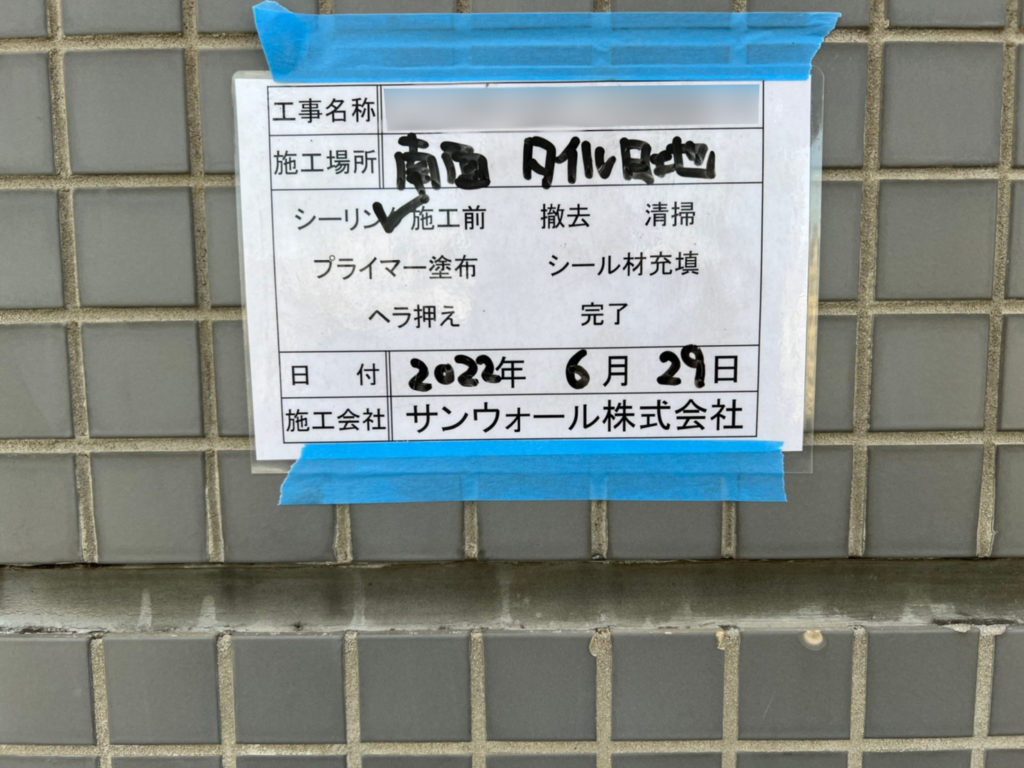 工事名称
施工場所 南面 タイル目地
シーリング 施工前 撤去 清掃
プライマー塗布 シール材充填
ヘラ押え 完了
日 付 2022年 6月 29日
施工会社 サンウォール株式会社